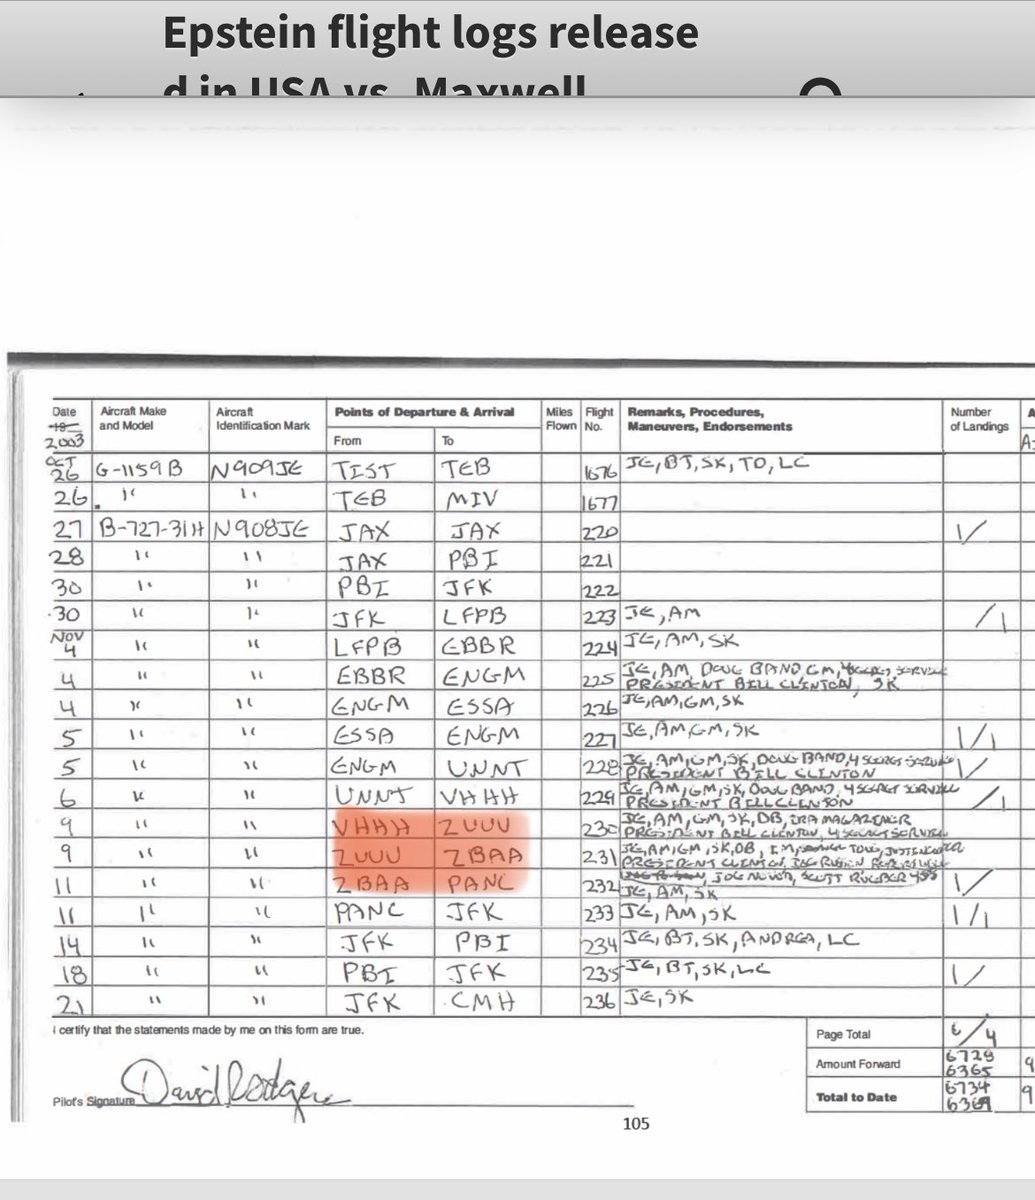 Epstein flight logs release
d in USA vs. Maxwell
Date Aircraft Make and Model Aircraft Identification Mark Points of Departure & Arrival Miles Flown Flight No. Remarks, Procedures, Maneuvers, Endorsements Number of Landings
19 2003 From To
OCT 26 G-1159B N909JE TIST TEB 1676 JE, BT, SK, TO, LC
26 " " TEB MIV 1677
27 B-727-31H N908JE JAX JAX 220 1/
28 " " JAX PBI 221
30 " " PBI JFK 222
30 " " JFK LFPB 223 JE, AM /1
NOV 4 " " LFPB EBBR 224 JE, AM, SK
4 " " EBBR ENGM 225 JE, AM, DOUG BAND, GM, 4 SECRET SERVICE
PRESIDENT BILL CLINTON, SK
4 " " ENGM ESSA 226 JE, AM, GM, SK
5 " " ESSA ENGM 227 JE, AM, GM, SK 1/1
5 " " ENGM UNNT 228 JE, AM, GM, SK, DOUG BAND, 4 SECRET SERVICE 1/
PRESIDENT BILL CLINTON
6 " " UNNT VHHH 229 JE, AM, GM, SK, DOUG BAND, 4 SECRET SERVICE /1
PRESIDENT BILL CLINTON
9 " " VHHH ZUUU 230 JE, AM, GM, SK, DB, IRA MAGAZINER
PRESIDENT BILL CLINTON, 4 SECRET SERVICE
9 " " ZUUU ZBAA 231 JE, AM, GM, SK, DB, IM,
PRESIDENT CLINTON,
11 " " ZBAA PANC 232 JE, AM, SK 1/
11 " " PANC JFK 233 JE, AM, SK 1/1
14 " " JFK PBI 234 JE, BT, SK, ANDREA, LC
18 " " PBI JFK 235 JE, BT, SK, LC 1/
21 " " JFK CMH 236 JE, SK
I certify that the statements made by me on this form are true.
Page Total 6/4
Amount Forward 6729 6365
Pilot's Signature David Rodgers
Total to Date 6734 6369
105